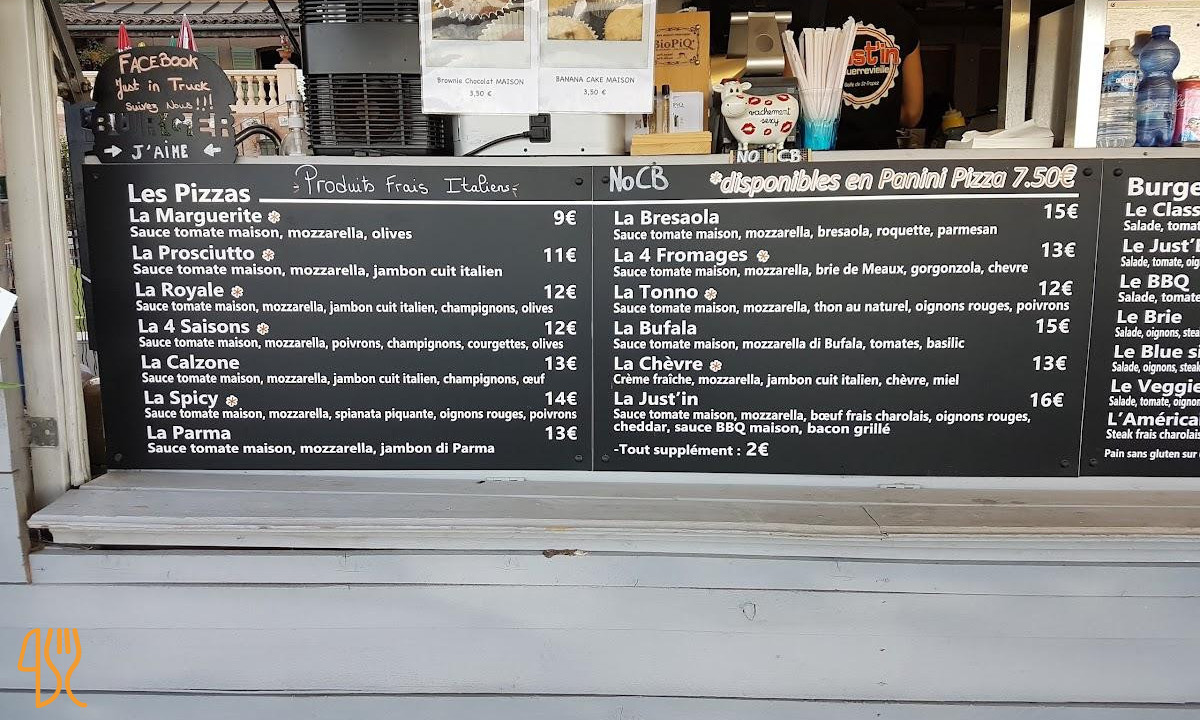 FACEBOOK
Just in Truck
Suivez Nous!!!
BURGER
J'AIME
Brownie Chocolat MAISON
3,50 €
BANANA CAKE MAISON
3,50 €
BioPiQ
vachement
sexy
NO CB
Just'in
Les Pizzas
Produits Frais Italiens
La Marguerite 9€
Sauce tomate maison, mozzarella, olives
La Prosciutto 11€
Sauce tomate maison, mozzarella, jambon cuit italien
La Royale 12€
Sauce tomate maison, mozzarella, jambon cuit italien, champignons, olives
La 4 Saisons 12€
Sauce tomate maison, mozzarella, poivrons, champignons, courgettes, olives
La Calzone 13€
Sauce tomate maison, mozzarella, jambon cuit italien, champignons, œuf
La Spicy 14€
Sauce tomate maison, mozzarella, spianata piquante, oignons rouges, poivrons
La Parma 13€
Sauce tomate maison, mozzarella, jambon di Parma
NoCB *disponibles en Panini Pizza 7.50€
La Bresaola 15€
Sauce tomate maison, mozzarella, bresaola, roquette, parmesan
La 4 Fromages 13€
Sauce tomate maison, mozzarella, brie de Meaux, gorgonzola, chevre
La Tonno 12€
Sauce tomate maison, mozzarella, thon au naturel, oignons rouges, poivrons
La Bufala 15€
Sauce tomate maison, mozzarella di Bufala, tomates, basilic
La Chèvre 13€
Crème fraîche, mozzarella, jambon cuit italien, chèvre, miel
La Just'in 16€
Sauce tomate maison, mozzarella, bœuf frais charolais, oignons rouges,
cheddar, sauce BBQ maison, bacon grillé
-Tout supplément : 2€
Burge
Le Class
Salade, tomat
Le Just'
Salade, tomate, oig
Le BBQ
Salade, tomate
Le Brie
Salade, oignons, stea
Le Blue si
Salade, oignons, steak
Le Veggie
Salade, tomate, oignon
L'América
Steak frais charolais
Pain sans gluten sur